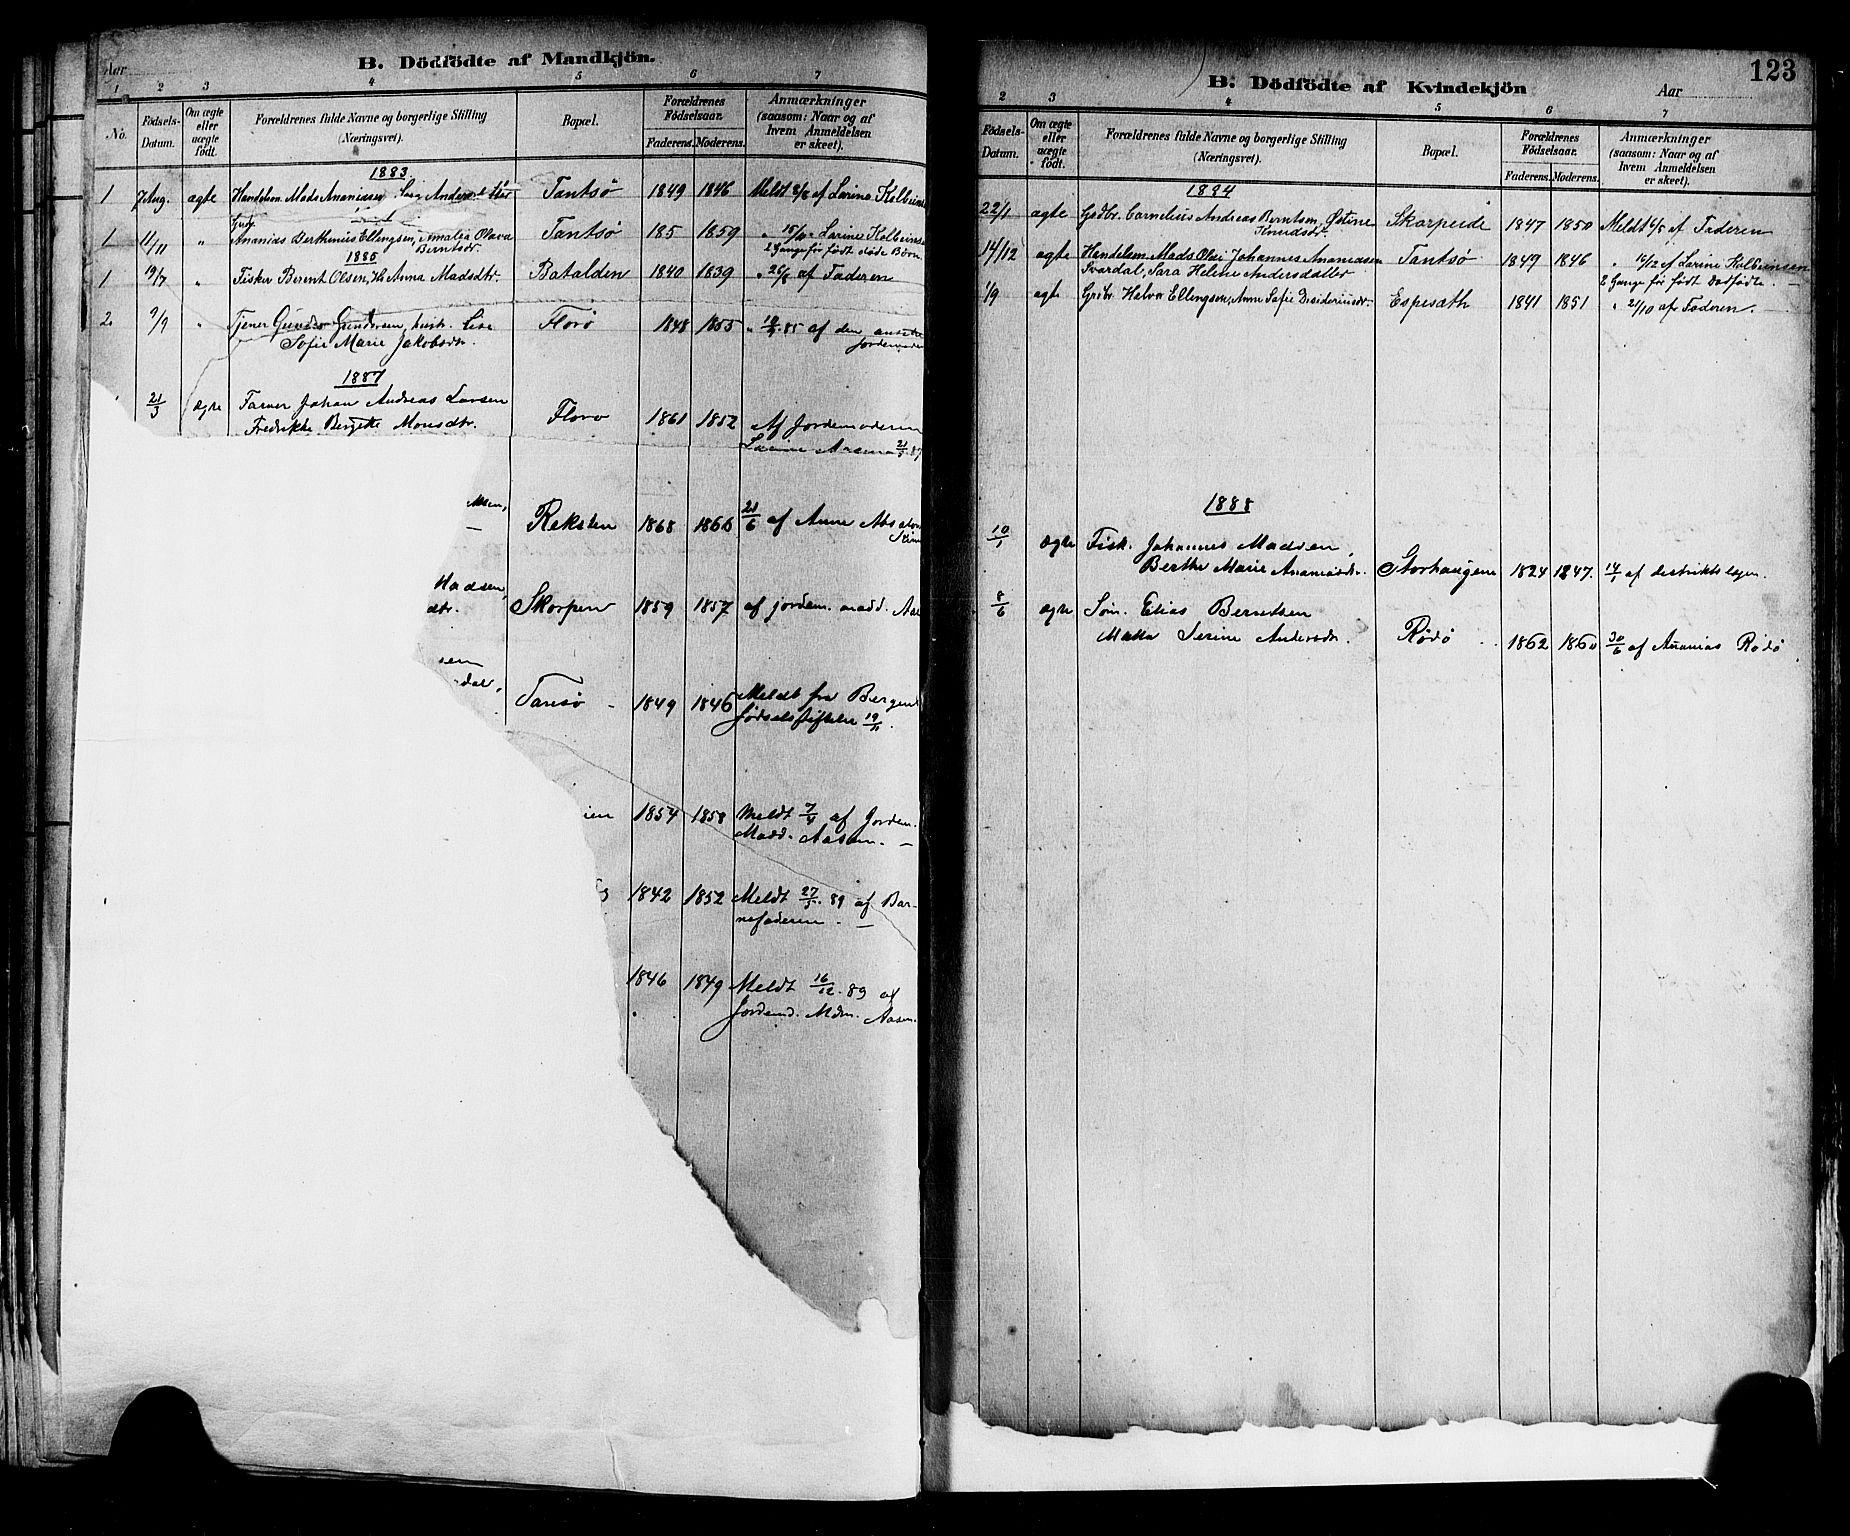 B. Dödfödte af Mandkjön.
Aar
1 2 3 4 5 6 7
No.
Födsels-
Datum.
Om ægte
eller
uægte
födt.
Forældrenes fulde Navne og borgerlige Stilling
(Næringsvei).
Bopæl.
Forældrenes
Födselsaar.
Faderens. Moderens.
Anmærkninger
(saasom: Naar og af
hvem Anmeldelsen
er skeet).
1883.
1 7 Aug. ægte Handelsm. Mads Ananiassen Tantsø 1849 1846 Meldt 8/8 af Larine Kolbeins
Grdbr.
1 11/11 " Ananias Berthinius Ellingsen, Amalia Olava Tantsø 185 1859 " 15/11 Larine Kolbeins
Berntsdr 2 Gange før født døde Børn
1885
1 19/7 " Fisker Bernt Olsen, H. Anna Madsdtr. Batalden 1840 1839 " 26/8 af Faderen
2 9/9 " Tjener Gunder Gundersen, hustr. Lise Florø 1848 1855 85 af den ansatte
Sofie Marie Jakobsdr. Jordemoder
1887
21/3 ægte Farver Johan Andreas Larsen Florø 1861 1852 Af Jordemoderen
Fredrikke Bergitte Monsdtr. Larine Aasen 21/3 87
Reksten 1868 1866 21/6 af Anne
Madsen,
dtr. Skorpen 1859 1857 af jordem. madd. Aa
sen
dal, Tansø 1849 1846 Meldt fra Bergens
fødselsstiftelse 19/11.
ien 1854 1858 Meldt 7/4 af Jordem.
Madd. Aasen. —
1842 1852 Meldt 27/5 89 af Bar-
nefaderen. —
1846 1849 Meldt 16/12 89 af
Jordemd. Mdm. Aasen.
123
B. Dödfödte af Kvindekjön
Aar
2 3 4 5 6 7
Födsels-
Datum.
Om ægte
eller
uægte
födt.
Forældrenes fulde Navne og borgerlige Stilling
(Næringsvei).
Bopæl.
Forældrenes
Födselsaar.
Faderens. Moderens.
Anmærkninger
(saasom: Naar og af
hvem Anmeldelsen
er skeet).
1884
22/1 ægte Grdbr. Cornelius Andreas Berntsen, Østine Skorpeide 1847 1850 Meldt 6/5 af Faderen
Knudsdr.
14/12 ægte Handelsm. Mads Olai Johannes Ananiassen Tantsø 1849 1846 " 16/12 af Larine Kolbeinsen
Svardal, Sara Helene Andersdatter 2 Gange før født Dødfødte. —
1/9 ægte Grdbr. Helvor Ellingsen, Anne Sofie Desideriusdr. Espesæth 1841 1851 " 21/10 af Faderen.
1888
10/1 ægte Fisk. Johannes Madsen,
Berthe Marie Ananiasdr. Storhaugene 1824 1847. 14/1 af distriktslægen.
8/6 ægte Søm. Elias Berntsen
Matta Serine Andersdr. Rødø 1862 1860 30/6 af Ananias Rødø